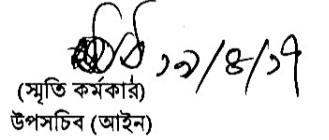 ১৯/৪/১৭
(স্মৃতি কর্মকার)
উপসচিব (আইন)